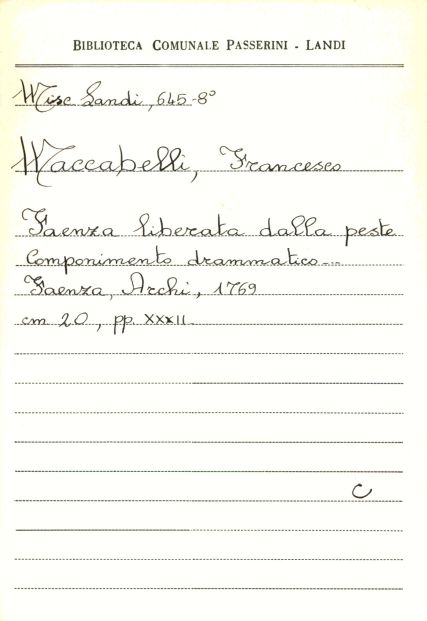 BIBLIOTECA COMUNALE PASSERINI - LANDI
Misc Landi, 645-8°
Maccabelli, Francesco
Faenza liberata dalla peste
Componimento drammatico...
Faenza, Archi, 1769
cm 20, pp. XXXII.
C